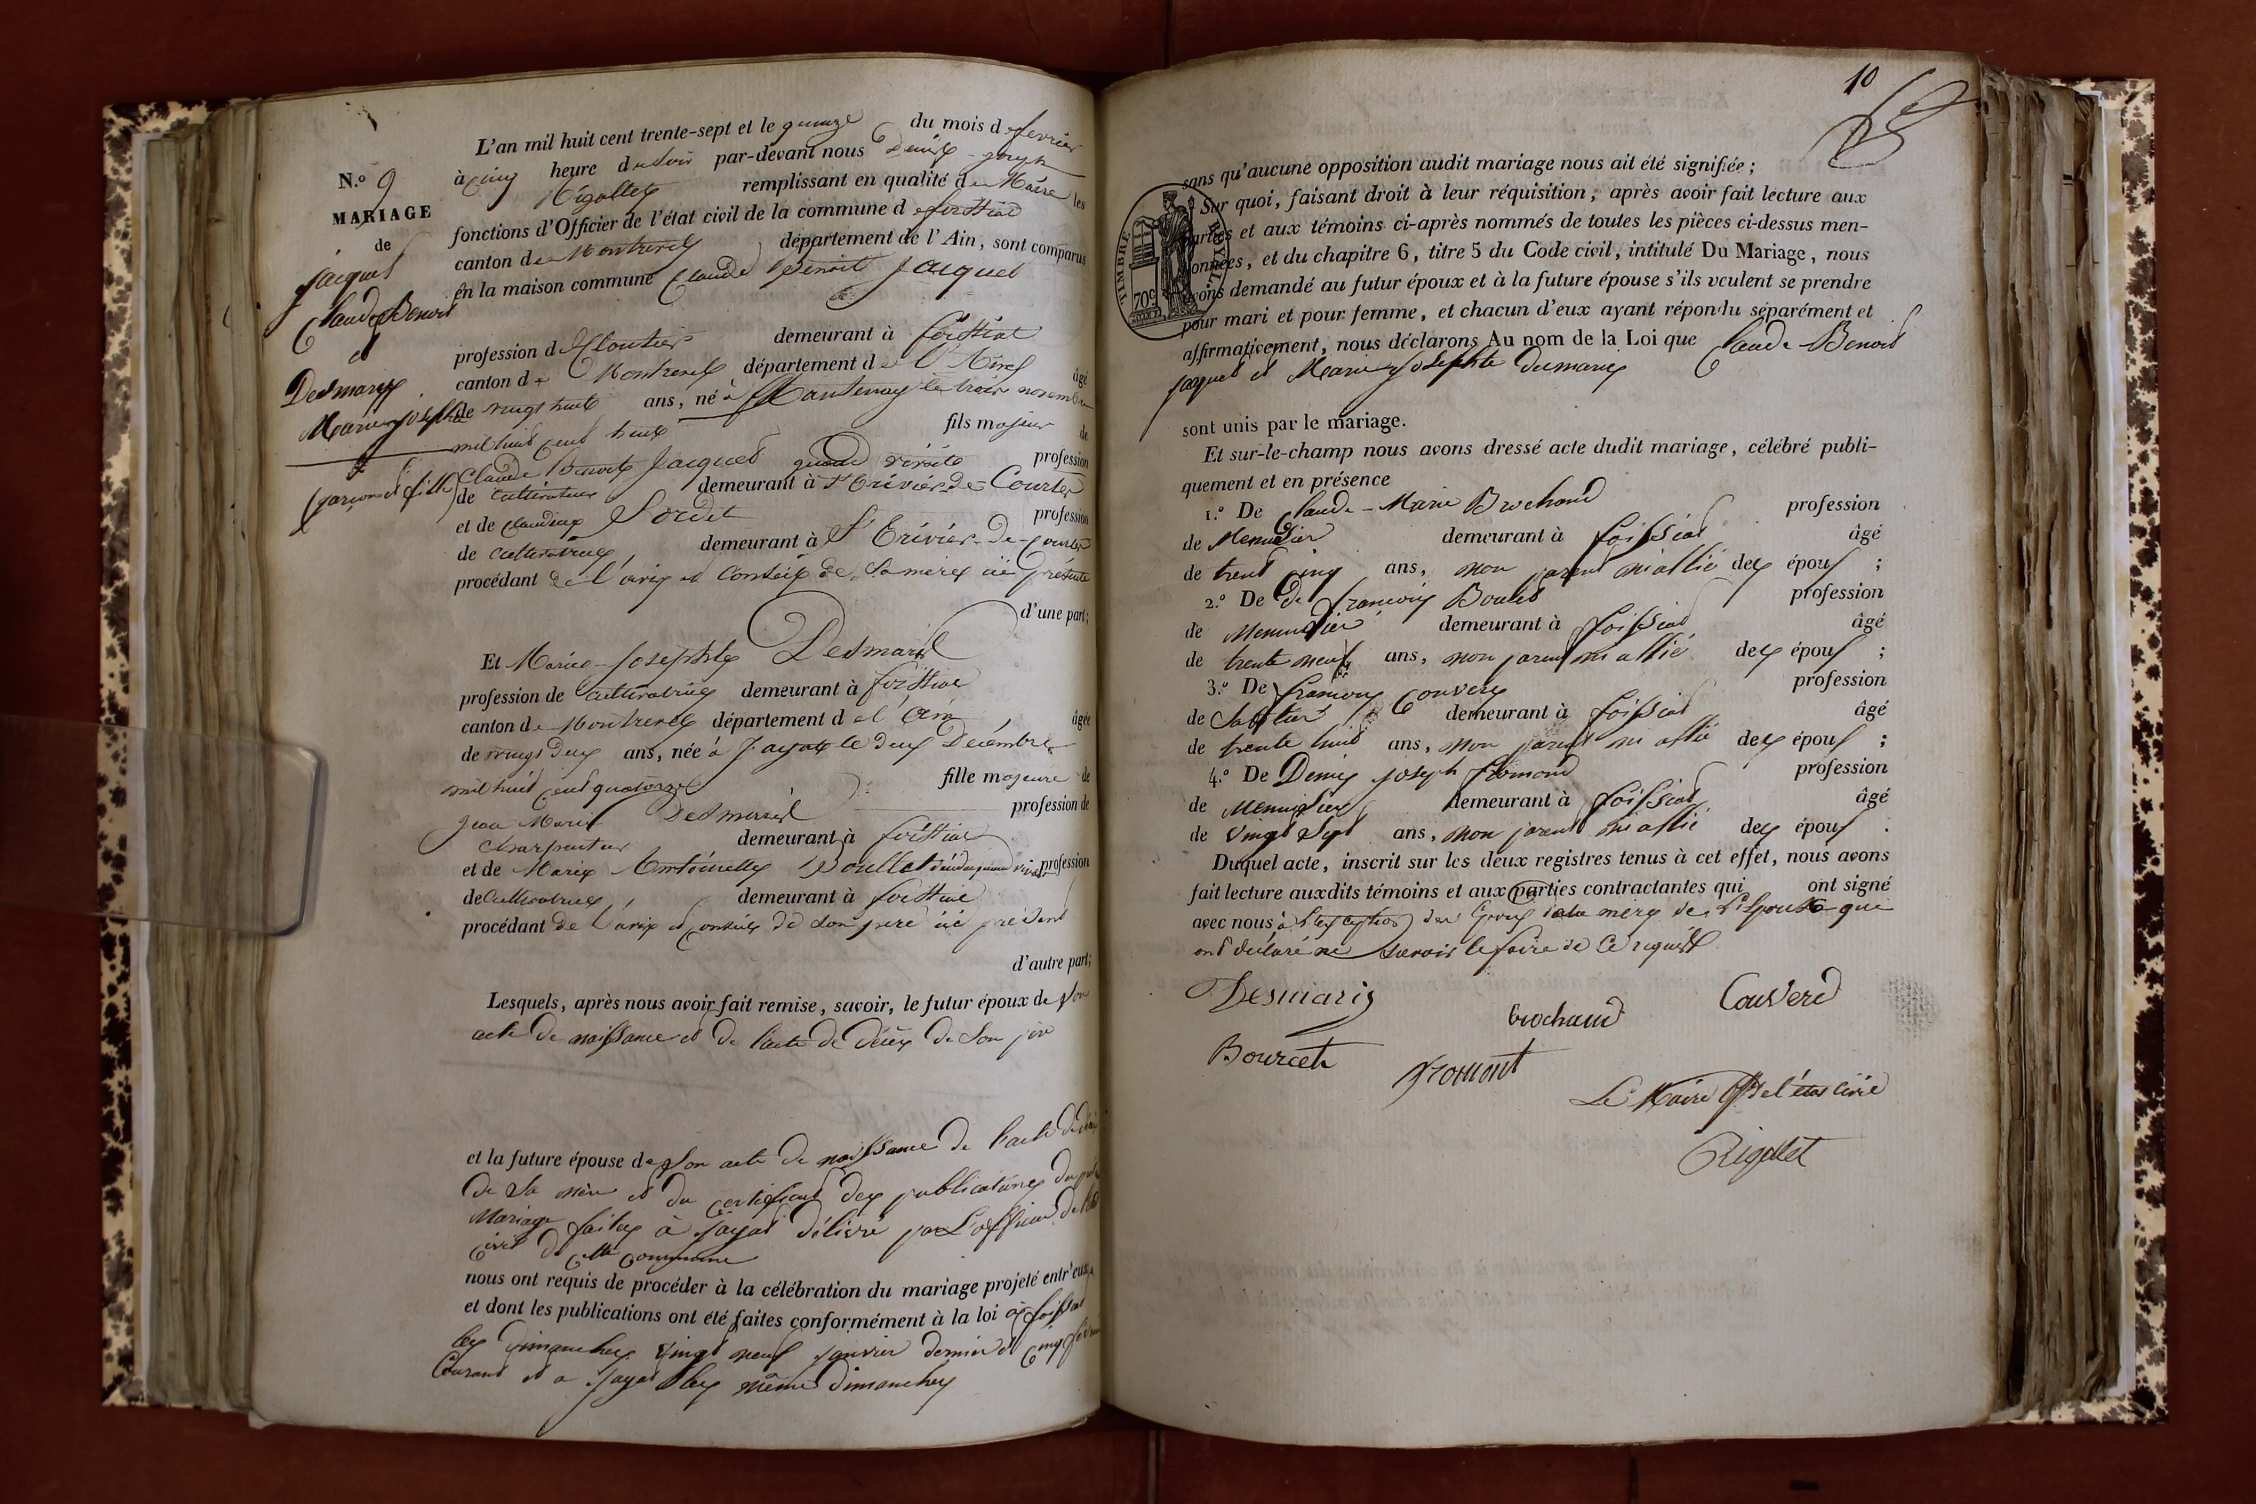 N.º 9
MARIAGE
de
Jacquet
Claude Benoit
et
Desmaris
Marie Josephte
(garçon et fille)
L'an mil huit cent trente-sept et le quinze du mois de fevrier
à cinq heure du soir par-devant nous Denis - joseph
Rigollet remplissant en qualité de Maire les
fonctions d'Officier de l'état civil de la commune de foissiat
canton de Montrevel département de l'Ain, sont comparus
en la maison commune Claude Benoit Jacquet
profession de Cloutier demeurant à foissiat
canton de Montrevel département de l'Ain âgé
de vingt huit ans, né à Mantenay le trois novembre
mil huit cent huit fils majeur de
Claude Benoit Jacquet quand vivait profession
de cultivateur demeurant à St Trivier de Courtes
et de Claudine Sordet profession
de cultivatrice, demeurant à St Trivier de Courtes
procédant de l'avis et conseil de sa mère ici présente
d'une part;
Et Marie-Josephte Desmaris
profession de cultivatrice demeurant à foissiat
canton de Montrevel département de l'Ain âgée
de vingt deux ans, née à Jayat le deux Décembre
mil huit cent quatorze fille majeure de
Jean Marie Desmaris profession de
Charpentier demeurant à foissiat
et de Marie Antoinette Poullet profession
de cultivatrice demeurant à foissiat
procédant de l'avis et conseil de son père ici présent
d'autre part;
Lesquels, après nous avoir fait remise, savoir, le futur époux de son
acte de naissance et de l'acte de décès de son père
et la future épouse de son acte de naissance de l'acte de décès
de sa mère et du certificat des publications du
Mariage faites à Jayat délivré par L'officier de l'état
civil de cette commune
nous ont requis de procéder à la célébration du mariage projeté entr'eux,
et dont les publications ont été faites conformément à la loi à foissiat
les dimanches vingt neuf janvier dernier et cinq février
Courant et a Jayat les même dimanches
10
sans qu'aucune opposition audit mariage nous ait été signifiée;
Sur quoi, faisant droit à leur réquisition, après avoir fait lecture aux
parties et aux témoins ci-après nommés de toutes les pièces ci-dessus men-
tionnées, et du chapitre 6, titre 5 du Code civil, intitulé Du Mariage, nous
avons demandé au futur époux et à la future épouse s'ils veulent se prendre
pour mari et pour femme, et chacun d'eux ayant répondu séparément et
affirmativement, nous déclarons Au nom de la Loi que Claude Benoit
Jacquet et Marie Josephte Desmaris
TIMBRE ROYAL
70c
sont unis par le mariage.
Et sur-le-champ nous avons dressé acte dudit mariage, célébré publi-
quement et en présence
1.º De Claude-Marie Brochand profession
de Menuisier demeurant à foissiat âgé
de trent cinq ans, non parent ni allié des époux ;
2.º De de françois profession
de Menuisier demeurant à foissiat âgé
de trente neuf ans, non parent ni allié des époux ;
3.º De françois Convert profession
de Sabotier demeurant à foissiat âgé
de trente huit ans, non parent ni allié des époux ;
4.º De Denis joseph fromond profession
de Menuisier demeurant à foissiat âgé
de vingt sept ans, non parent ni allié des époux .
Duquel acte, inscrit sur les deux registres tenus à cet effet, nous avons
fait lecture auxdits témoins et aux parties contractantes qui ont signé
avec nous à l'exception des Epoux de la mère de l'Epoux que
ont déclaré ne savoir le faire de ce requis
Desmaris
Brochand
Couverd
Bourcet
fromont
Le Maire off. de l'état civil
Rigollet